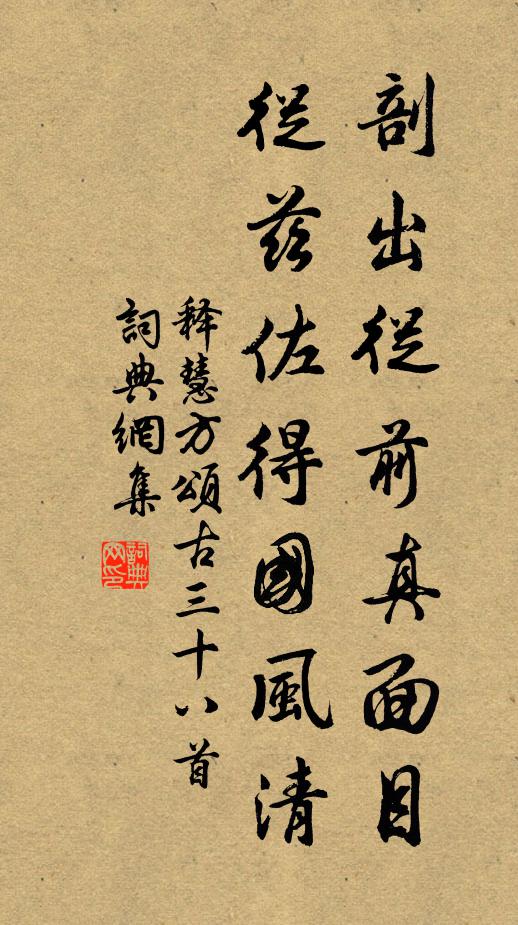 剖出從前真面目
從茲佐得國風清
释慧方頌古三十八首
詞典網集
詞典網印